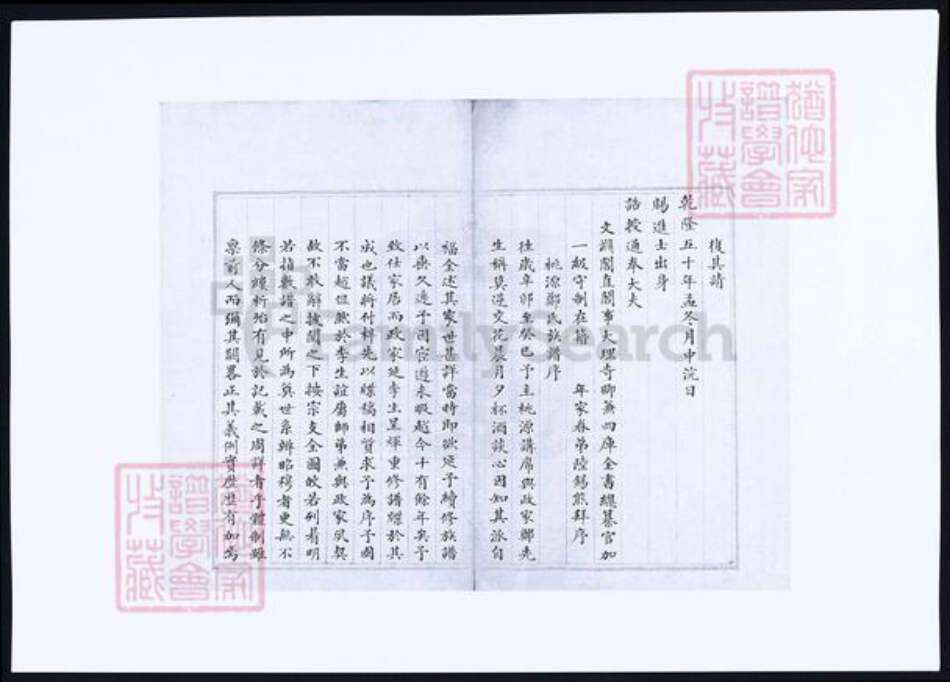 復其請
乾隆五十年孟冬月中浣日
賜進士出身
誥授通奉大夫
文淵閣直閣事大理寺卿兼四庫全書總纂官加
一級守制在籍 年家眷弟陸錫熊拜序
桃源鄭氏族譜序
往歲辛卯至癸巳予主桃源講席與政家鄭先
生稱莫逆交花晨月夕杯酒談心因知其派自
福全述其家世甚詳當時即欲延予續修族譜
以喪久遠予因宦遊未暇越今十有餘年矣予
致仕家居而政家延李生呈輝重修譜牒於其
成也議將付梓先以牒稿相質求予為序予固
不當越俎然於李生誼屬師弟兼與政家夙契
故不敢辭披閱之下按宗支全圖皎若列眉明
若指數譜之中所為奠世系辨昭穆者更無不
條分縷析殆有見於記載之周詳者乎體制雖
稟前人而彌其闕畧正其義例實歷歷有加焉
猶他家
譜學會
收藏
猶他家
譜學會
收藏
FamilySearch